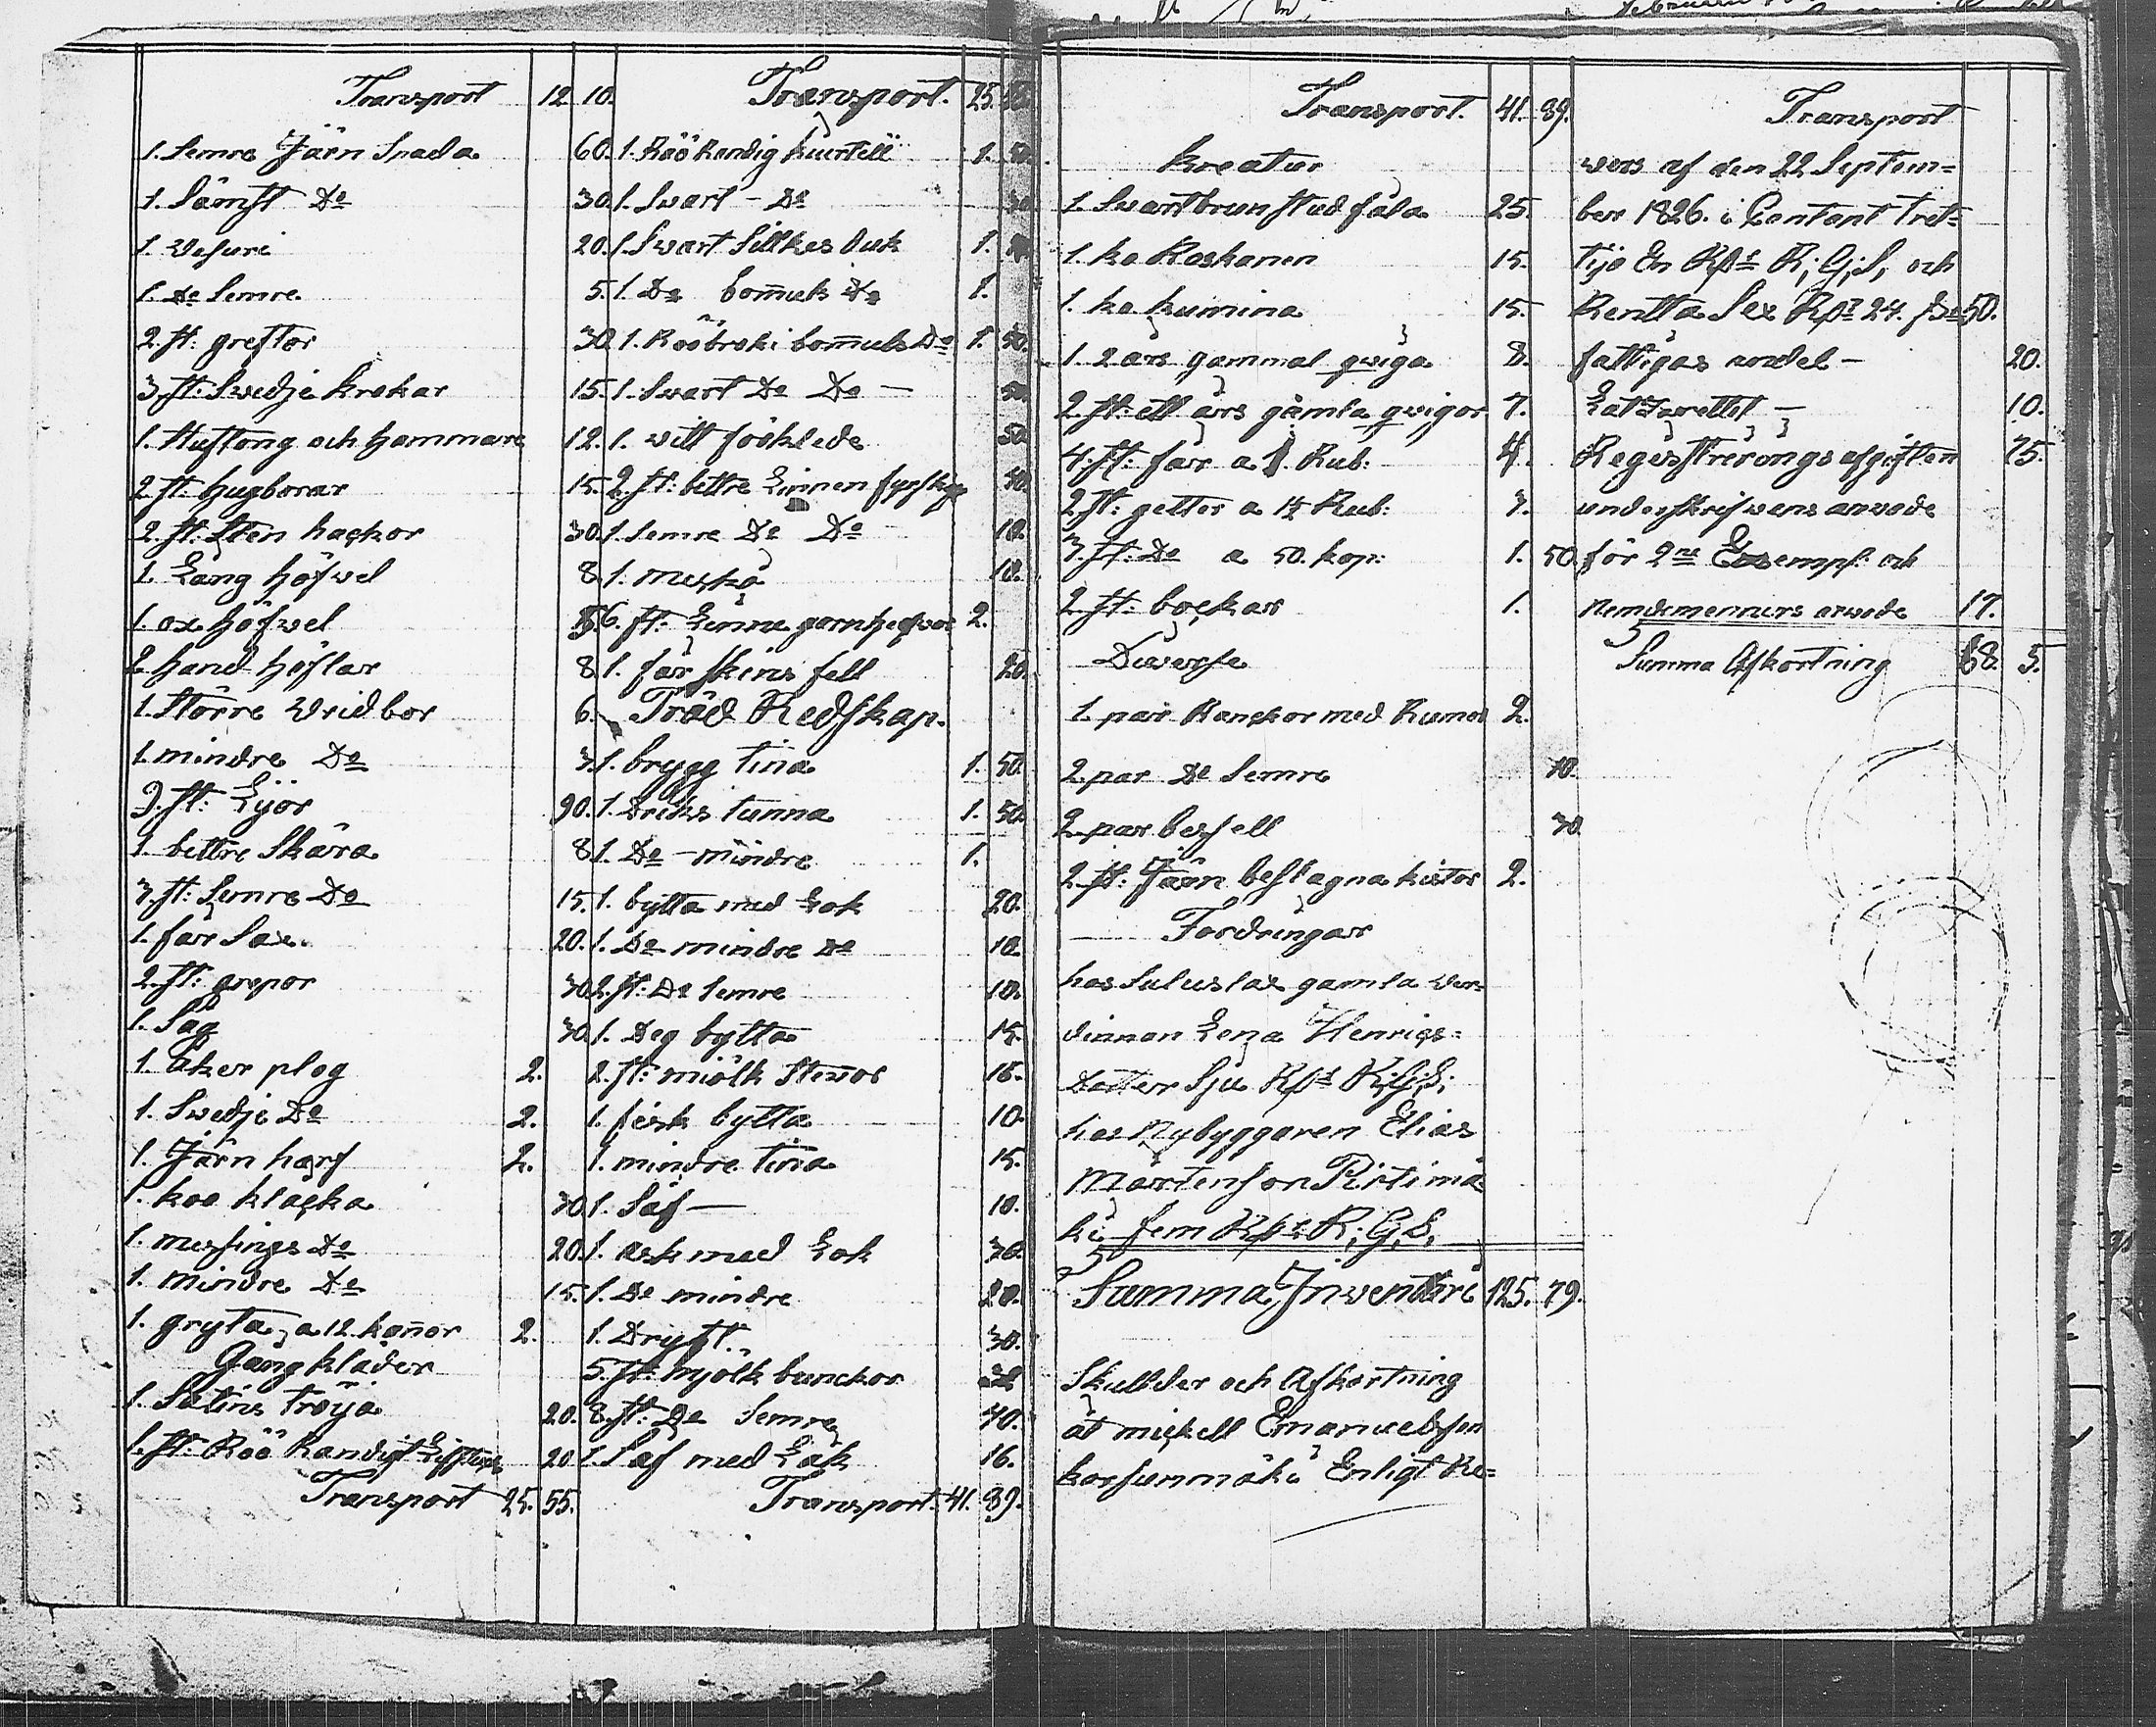 Transport 12. 10.
1. Semre Järn Spada 60.
1. Sämst Do 30.
1. Vesuri 20.
1. Do Semre 5.
2. st: greftor 30.
3. st: Swedje krokar 15.
1. Huftong och hammare 12.
2. st: hugborar 15.
2. st: Sten hackor 30.
1. Lång höfvel 8.
1. ox höfvel
2 hand höflar 8.
1. större Vridbor 6.
1. mindre Do 3.
9. st: Lijor 90.
1. bettre Skära 8.
3. st: Semre Do 15.
1. får Sax. 20.
2. st: grepor 30.
1. Såg 30.
1. åker plog 2.
1. Swedje Do 2.
1. Järn harf 2.
1. koo klacka 30.
1. messings Do 20.
1. mindre Do 15.
1. gryta a 12. kañor 2.
Gångkläder
1. Satins tröija 20.
1. st: Röö Randigt 20
Transport 25. 55.
Transport. 25.
1. Röö Randig kiurtell 1. 50.
1. Svart - Do 30
1. Svart Sillkes duk 1.
1. Do bom̃uls Do 1.
1. Rööbroki bom̃uls Do 1. 50.
1. Svart Do Do — 50.
1. vitt föòklede 50
2. st: bettre Linnen 40.
1. Semre Do Do 10.
1. meska 10.
6. st: Linne garn 2.
1. får skins fell 20.
Träd Redskap.
1. brygg tina 1. 50.
1. Driks tunna 1. 50.
1. Do - mindre 1.
1. bytta med Lok 20.
1. Do mindre Do 10.
2. st: Do Semre 10.
1. Deg bytta 15.
2. st: miölk Stevor 15.
1. fisk bytta 10.
1. mindre tina 15.
1. Såf — 10.
1. ask med Lok 30.
1. Do mindre 20.
1. Dryft. 30.
5. st: mjölk bunckor
8. st: Do Semre 40.
1. Saf med Låk 16.
Transport. 41. 89.
Transport. 41. 89.
Kreatur
1. Svartbrun stud fåla 25.
1. ko Roskanen 15.
1. ko kumina 15.
1. 2 års gammal qwiga 8.
2. st: ett års gamla qwigor 7.
4. st: får a 1. Rub: 4.
2. st: gettor a 1½ Rub: 3.
3. st: Do a 50. kop: 1. 50.
2. st: bockar 1.
Diverse
1. par Ranckor med Rumor 2.
2. par Do Semre
2. par bessell 30
2. st: Järn beslagna kistor 2.
Fordringar
hos Sulus lax gamla ver-
dinnan Lena Henrics-
dotter Sju Rps R;G;S;
hos Nybyggaren Elias
Mårtenson Pirtimä
ki fem Rps R;G;S;
Summa Inventari 125. 79.
Skullder och Afkortning
åt mickell Emanuelsson
korsunmäki Enligt Re-
Transport
vers af den 22 Septem-
ber 1826. i Contant tret-
tijo En Rps R;G;S; och
Rentta Sex Rps 24. 50.
fattigas andel — 20.
10.
Registreringsafgiften 75.
underskrifvens arvode
för 2ne Exempl: och
Nemdemenners arvode 17.
Summa Afkortning 68. 5.